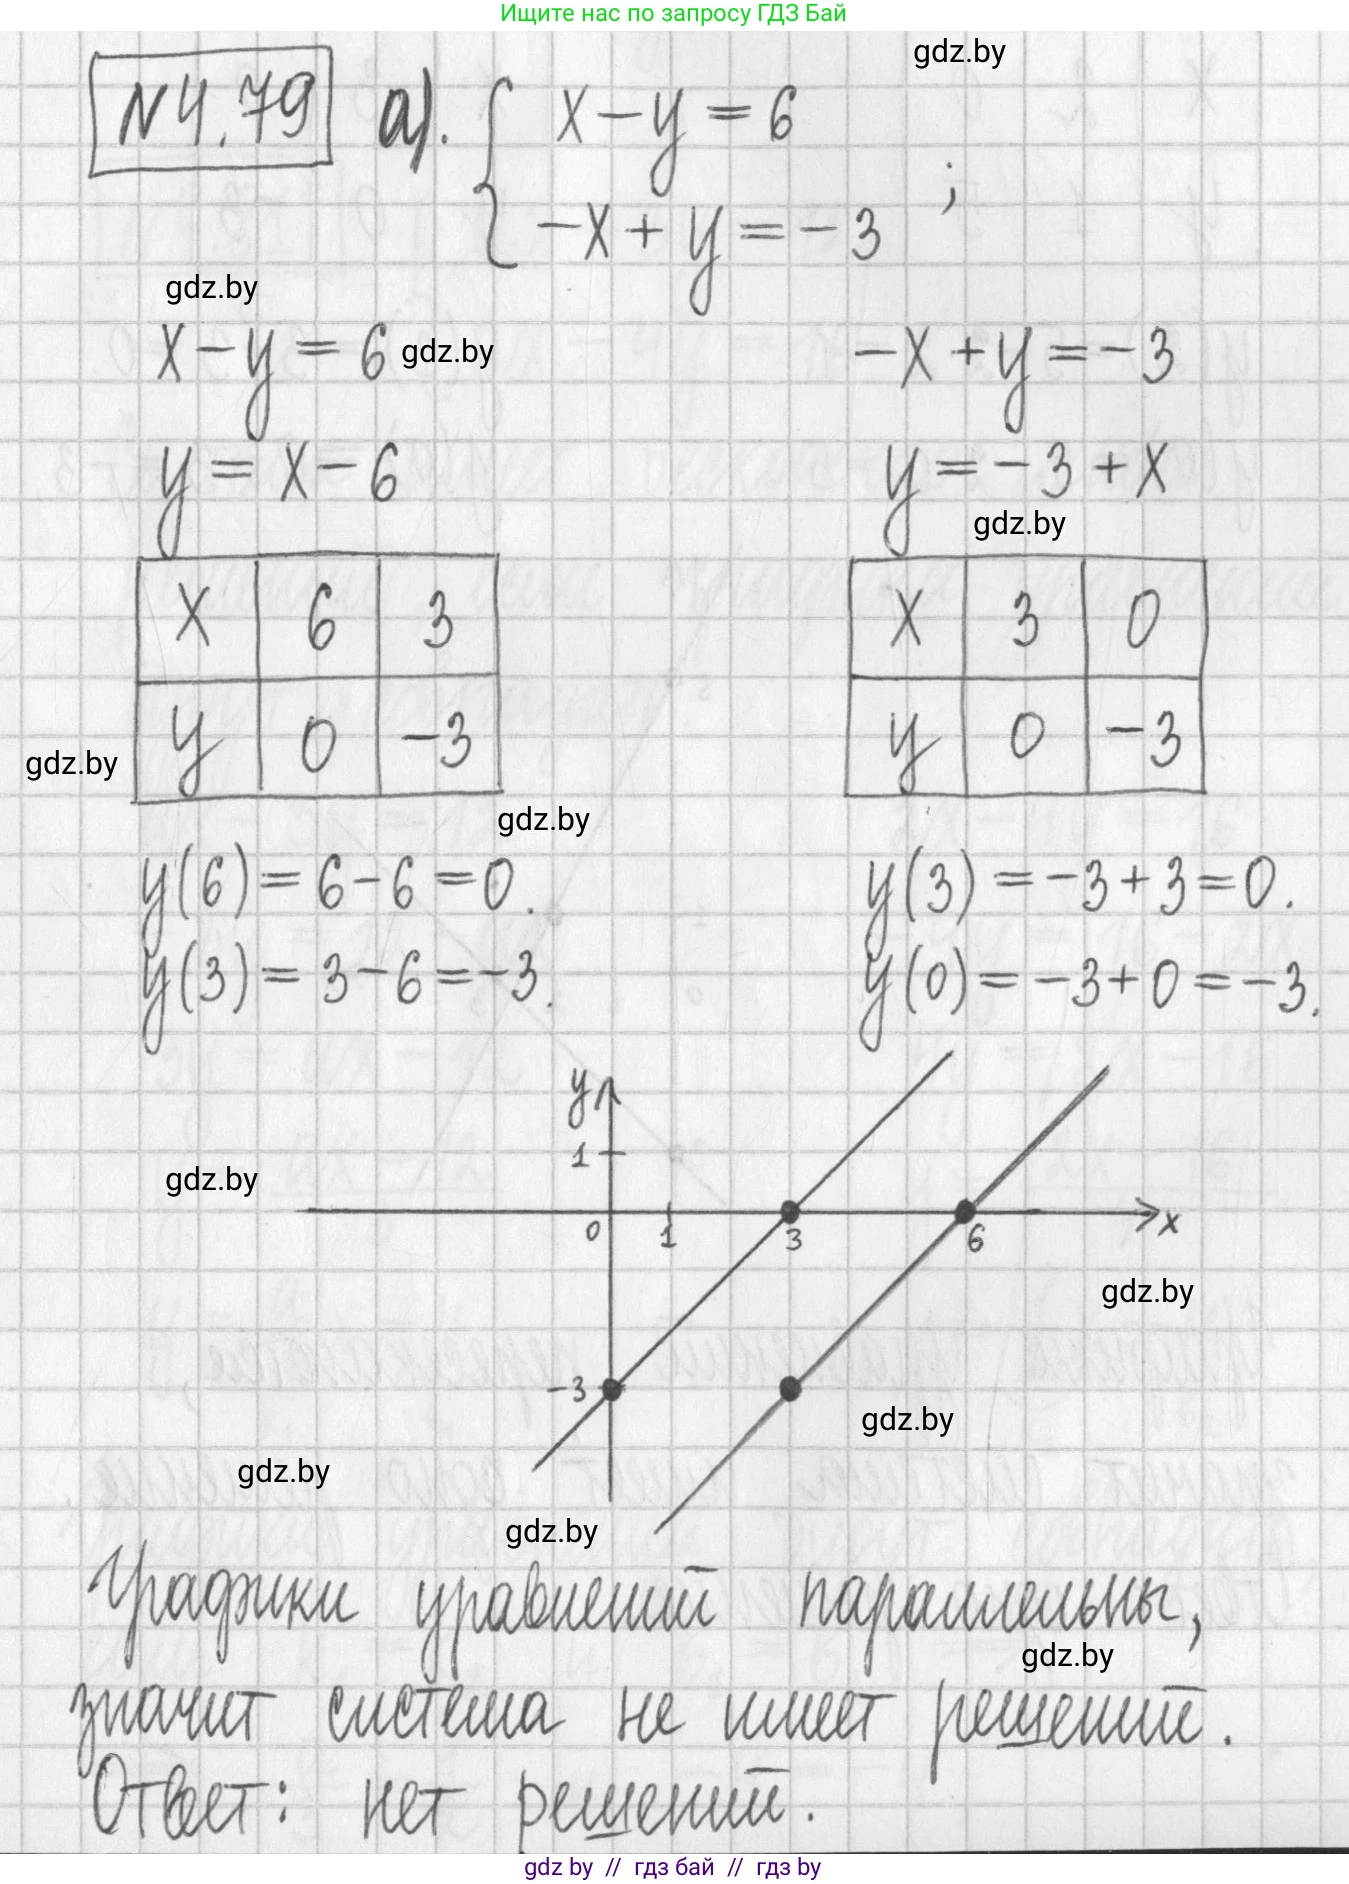 Ищите нас по запросу ГДЗ Бай
gdz.by
N4.79 а). { x-y=6
-x+y=-3 ;
gdz.by
x-y=6 gdz.by -x+y=-3
y=x-6 y=-3+x
gdz.by
x 6 3 x 3 0
y 0 -3 y 0 -3
gdz.by
gdz.by
y(6)=6-6=0. y(3)=-3+3=0.
y(3)=3-6=-3. y(0)=-3+0=-3.
y
1
gdz.by
0 1 3 6 x
gdz.by
-3
gdz.by
gdz.by
gdz.by
Графики уравнений параллельны,
gdz.by
значит система не имеет решений.
Ответ: нет решений.
gdz by // гдз бай // гдз by